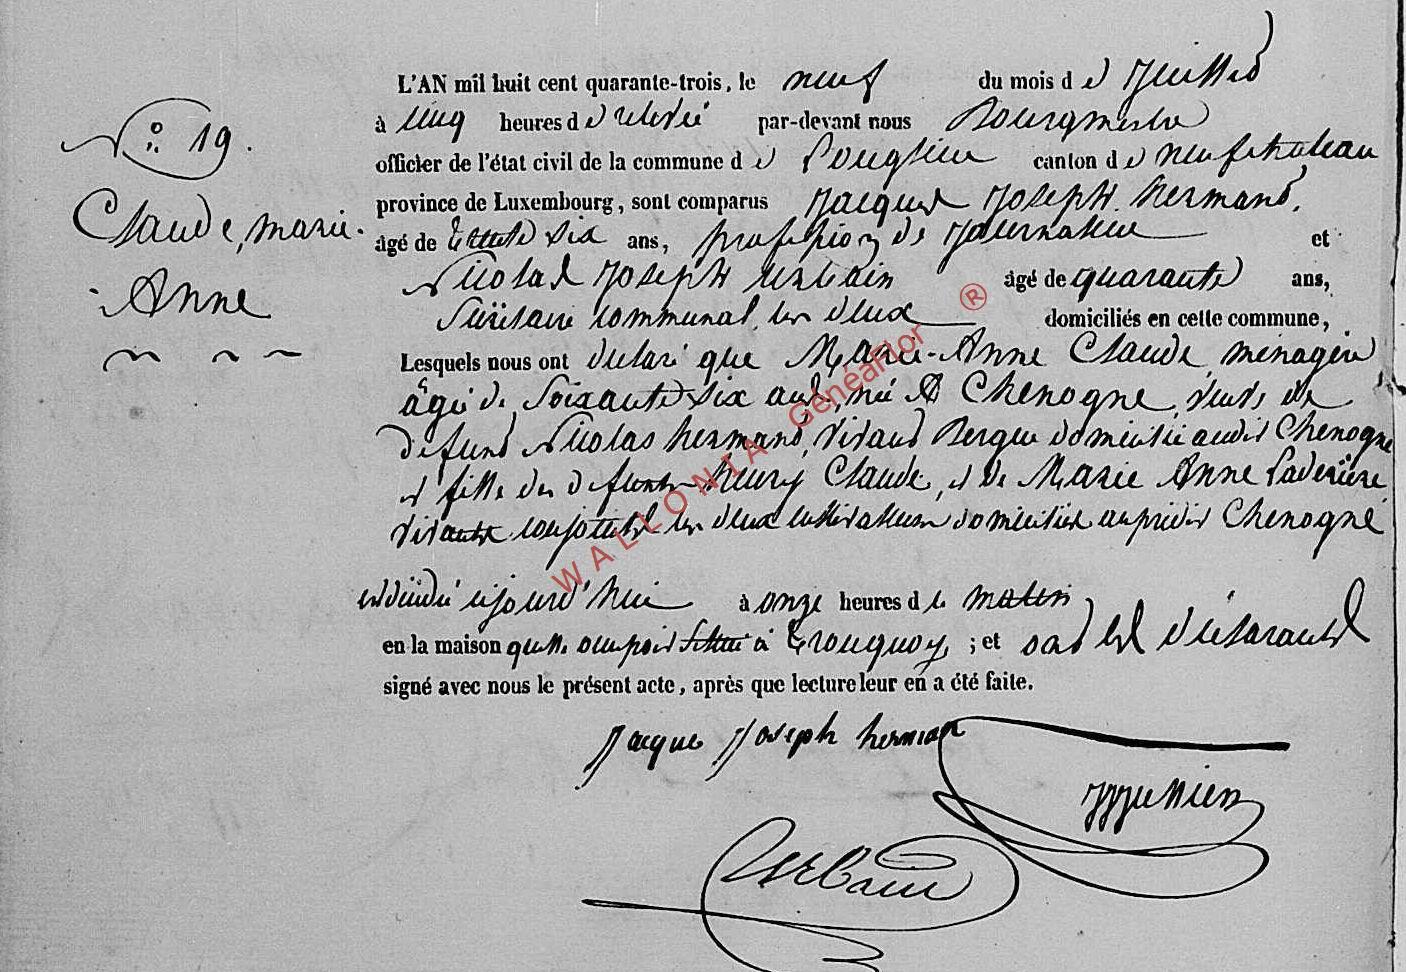 N° 19.
Claude, marie-
Anne
L'AN mil huit cent quarante-trois, le neuf du mois d e Juillet
à cinq heures d e relevée par-devant nous Bourgmestre
officier de l'état civil de la commune d e Longlier canton d e neufchateau
province de Luxembourg, sont comparus Jacques Joseph hermand,
âgé de trente six ans, profession de Journalier et
Nicolas Joseph Urbain âgé de quarante ans,
Secretaire communal, les deux domiciliés en cette commune,
Lesquels nous ont declaré que Marie-Anne Claude, menagere
âgée de Soixante six ans, née A Chenogne, veuve de
defunt Nicolas hermand, vivant Berger domicilié audit Chenogne
et fille des defunts henry Claude, et de Marie Anne
vivants conjoints les deux cultivateurs domiciliés audit Chenogne
est décédée cejourd'hui à onze heures d u matin
en la maison qu'elle occupoit située à tronquoy, ; et ont les déclarants
signé avec nous le présent acte, après que lecture leur en a été faite.
Jacque Joseph herman
Urbain
WALLONIA GénéaFlor ®